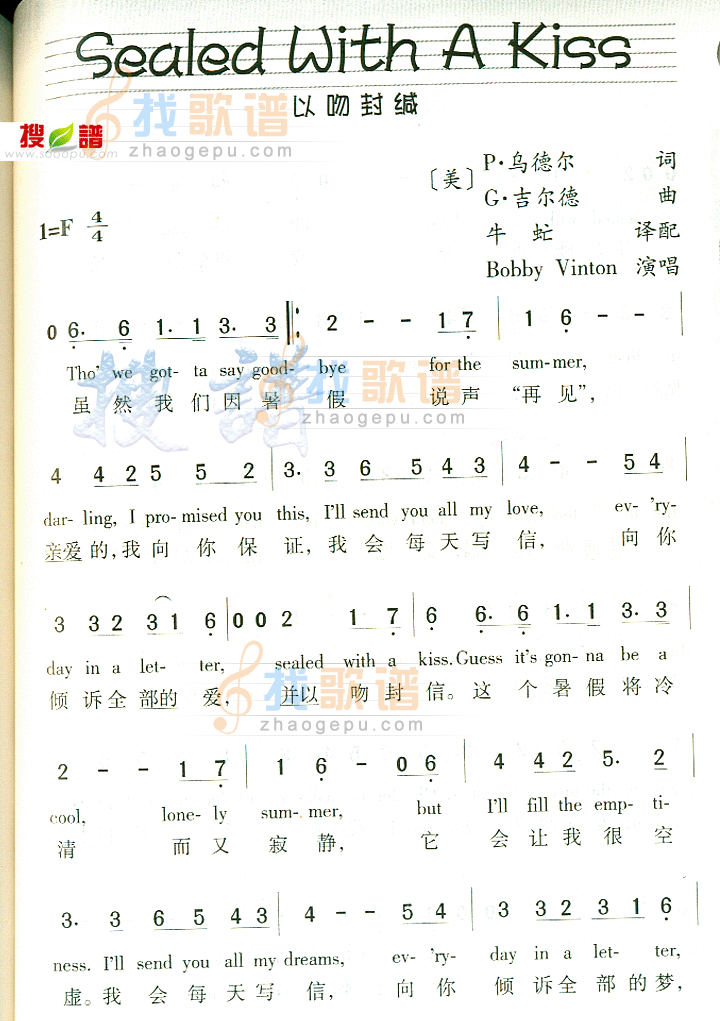 Sealed With A Kiss
以吻封缄
找歌谱
zhaogepu.com
搜谱
www.sooopu.com
〔美〕P·乌德尔 词
G·吉尔德 曲
牛 虻 译配
Bobby Vinton 演唱
1=F 4/4
0 6. 6 1. 1 3. 3 |: 2 - - 1 7 | 1 6 - - |
Tho' we got- ta say good- bye for the summer,
虽 然 我 们 因 暑 假 说 声 “再 见”,
搜谱
找歌谱
zhaogepu.com
4 4 2 5 5 2 | 3. 3 6 5 4 3 | 4 - - 5 4 |
dar- ling, I pro- mised you this, I'll send you all my love, ev- 'ry-
亲爱的,我 向 你 保 证,我 会 每 天 写 信, 向 你
3 3 2 3 1 6 | 0 0 2 1 7 | 6 6. 6 1. 1 3. 3 |
day in a let- ter, sealed with a kiss.Guess it's gon- na be a
倾 诉 全 部的 爱, 并以 吻 封 信。这 个 暑 假 将 冷
找歌谱
zhaogepu.com
2 - - 1 7 | 1 6 - 0 6 | 4 4 2 5. 2 |
cool, lone- ly sum- mer, but I'll fill the emp- ti-
清 而 又 寂 静, 它 会 让 我 很 空
3. 3 6 5 4 3 | 4 - - 5 4 | 3 3 2 3 1 6 |
ness. I'll send you all my dreams, ev- 'ry- day in a let- ter,
虚。我 会 每 天 写 信, 向 你 倾 诉 全 部 的 梦,